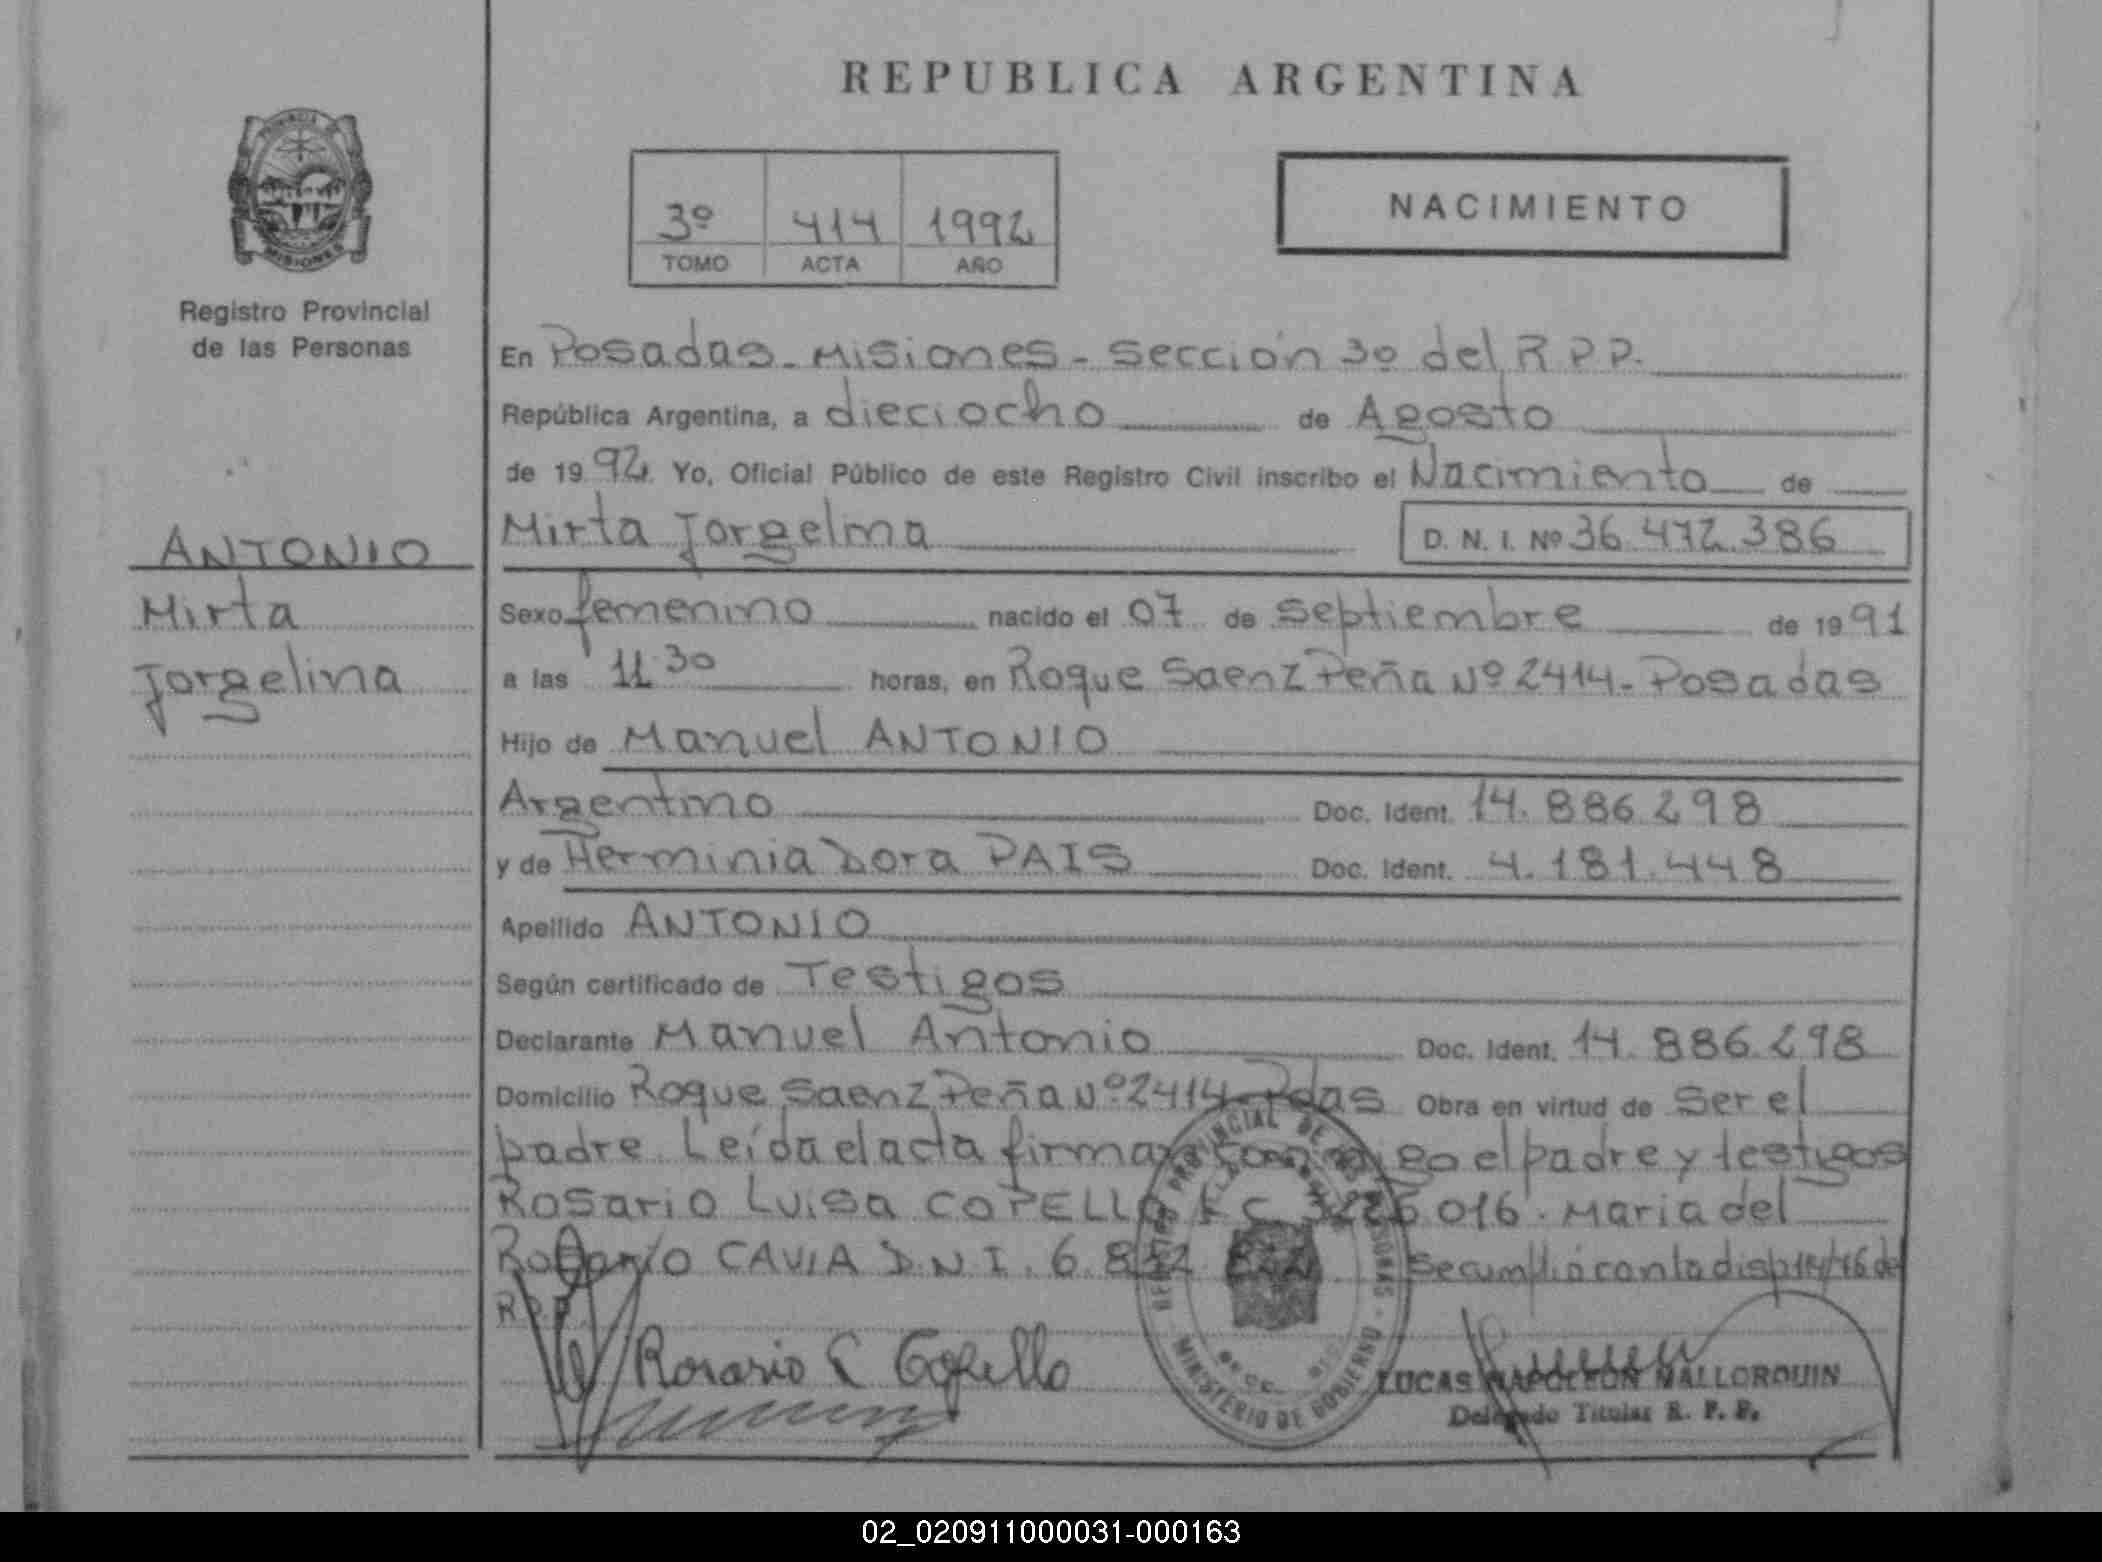 REPUBLICA ARGENTINA
PROVINCIA DE
MISIONES
Registro Provincial
de las Personas
3º 414 1992
TOMO ACTA AÑO
NACIMIENTO
En Posadas - Misiones - Sección 3º del R.P.P.
República Argentina, a dieciocho de Agosto
de 1992. Yo, Oficial Público de este Registro Civil inscribo el Nacimiento de
Mirta Jorgelina D. N. I. Nº 36.472.386
ANTONIO
Mirta
Jorgelina
Sexo femenino nacido el 07 de Septiembre de 1991
a las 11:30 horas, en Roque Saenz Peña Nº 2414 - Posadas
Hijo de Manuel ANTONIO
Argentino Doc. Ident. 14.886.298
y de Herminia Dora PAIS Doc. Ident. 4.181.448
Apellido ANTONIO
Según certificado de Testigos
Declarante Manuel Antonio Doc. Ident. 14.886.298
Domicilio Roque Saenz Peña Nº 2414 - Pdas Obra en virtud de Ser el
padre. Leída el acta firman conmigo el padre y testigos
Rosario Luisa COPELLO L.C. 016. Maria del
Rosario CAVIA D.N.I. 6. Se cumplió con la disp 14/76 del
R.P.P.
Rosario L Copello
MINISTERIO DE GOBIERNO
LUCAS NAPOLEON MALLORQUIN
Delegado Titular R. P. P.
02_020911000031-000163